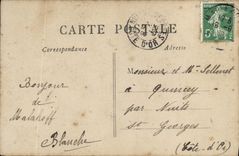 CARTE POSTALE
Correspondance
Adresse
Bonjour
de
Malakoff
Blanche
Monsieur et Mme
à Quincey
par Nuits
St Georges
(Côte d'Or)